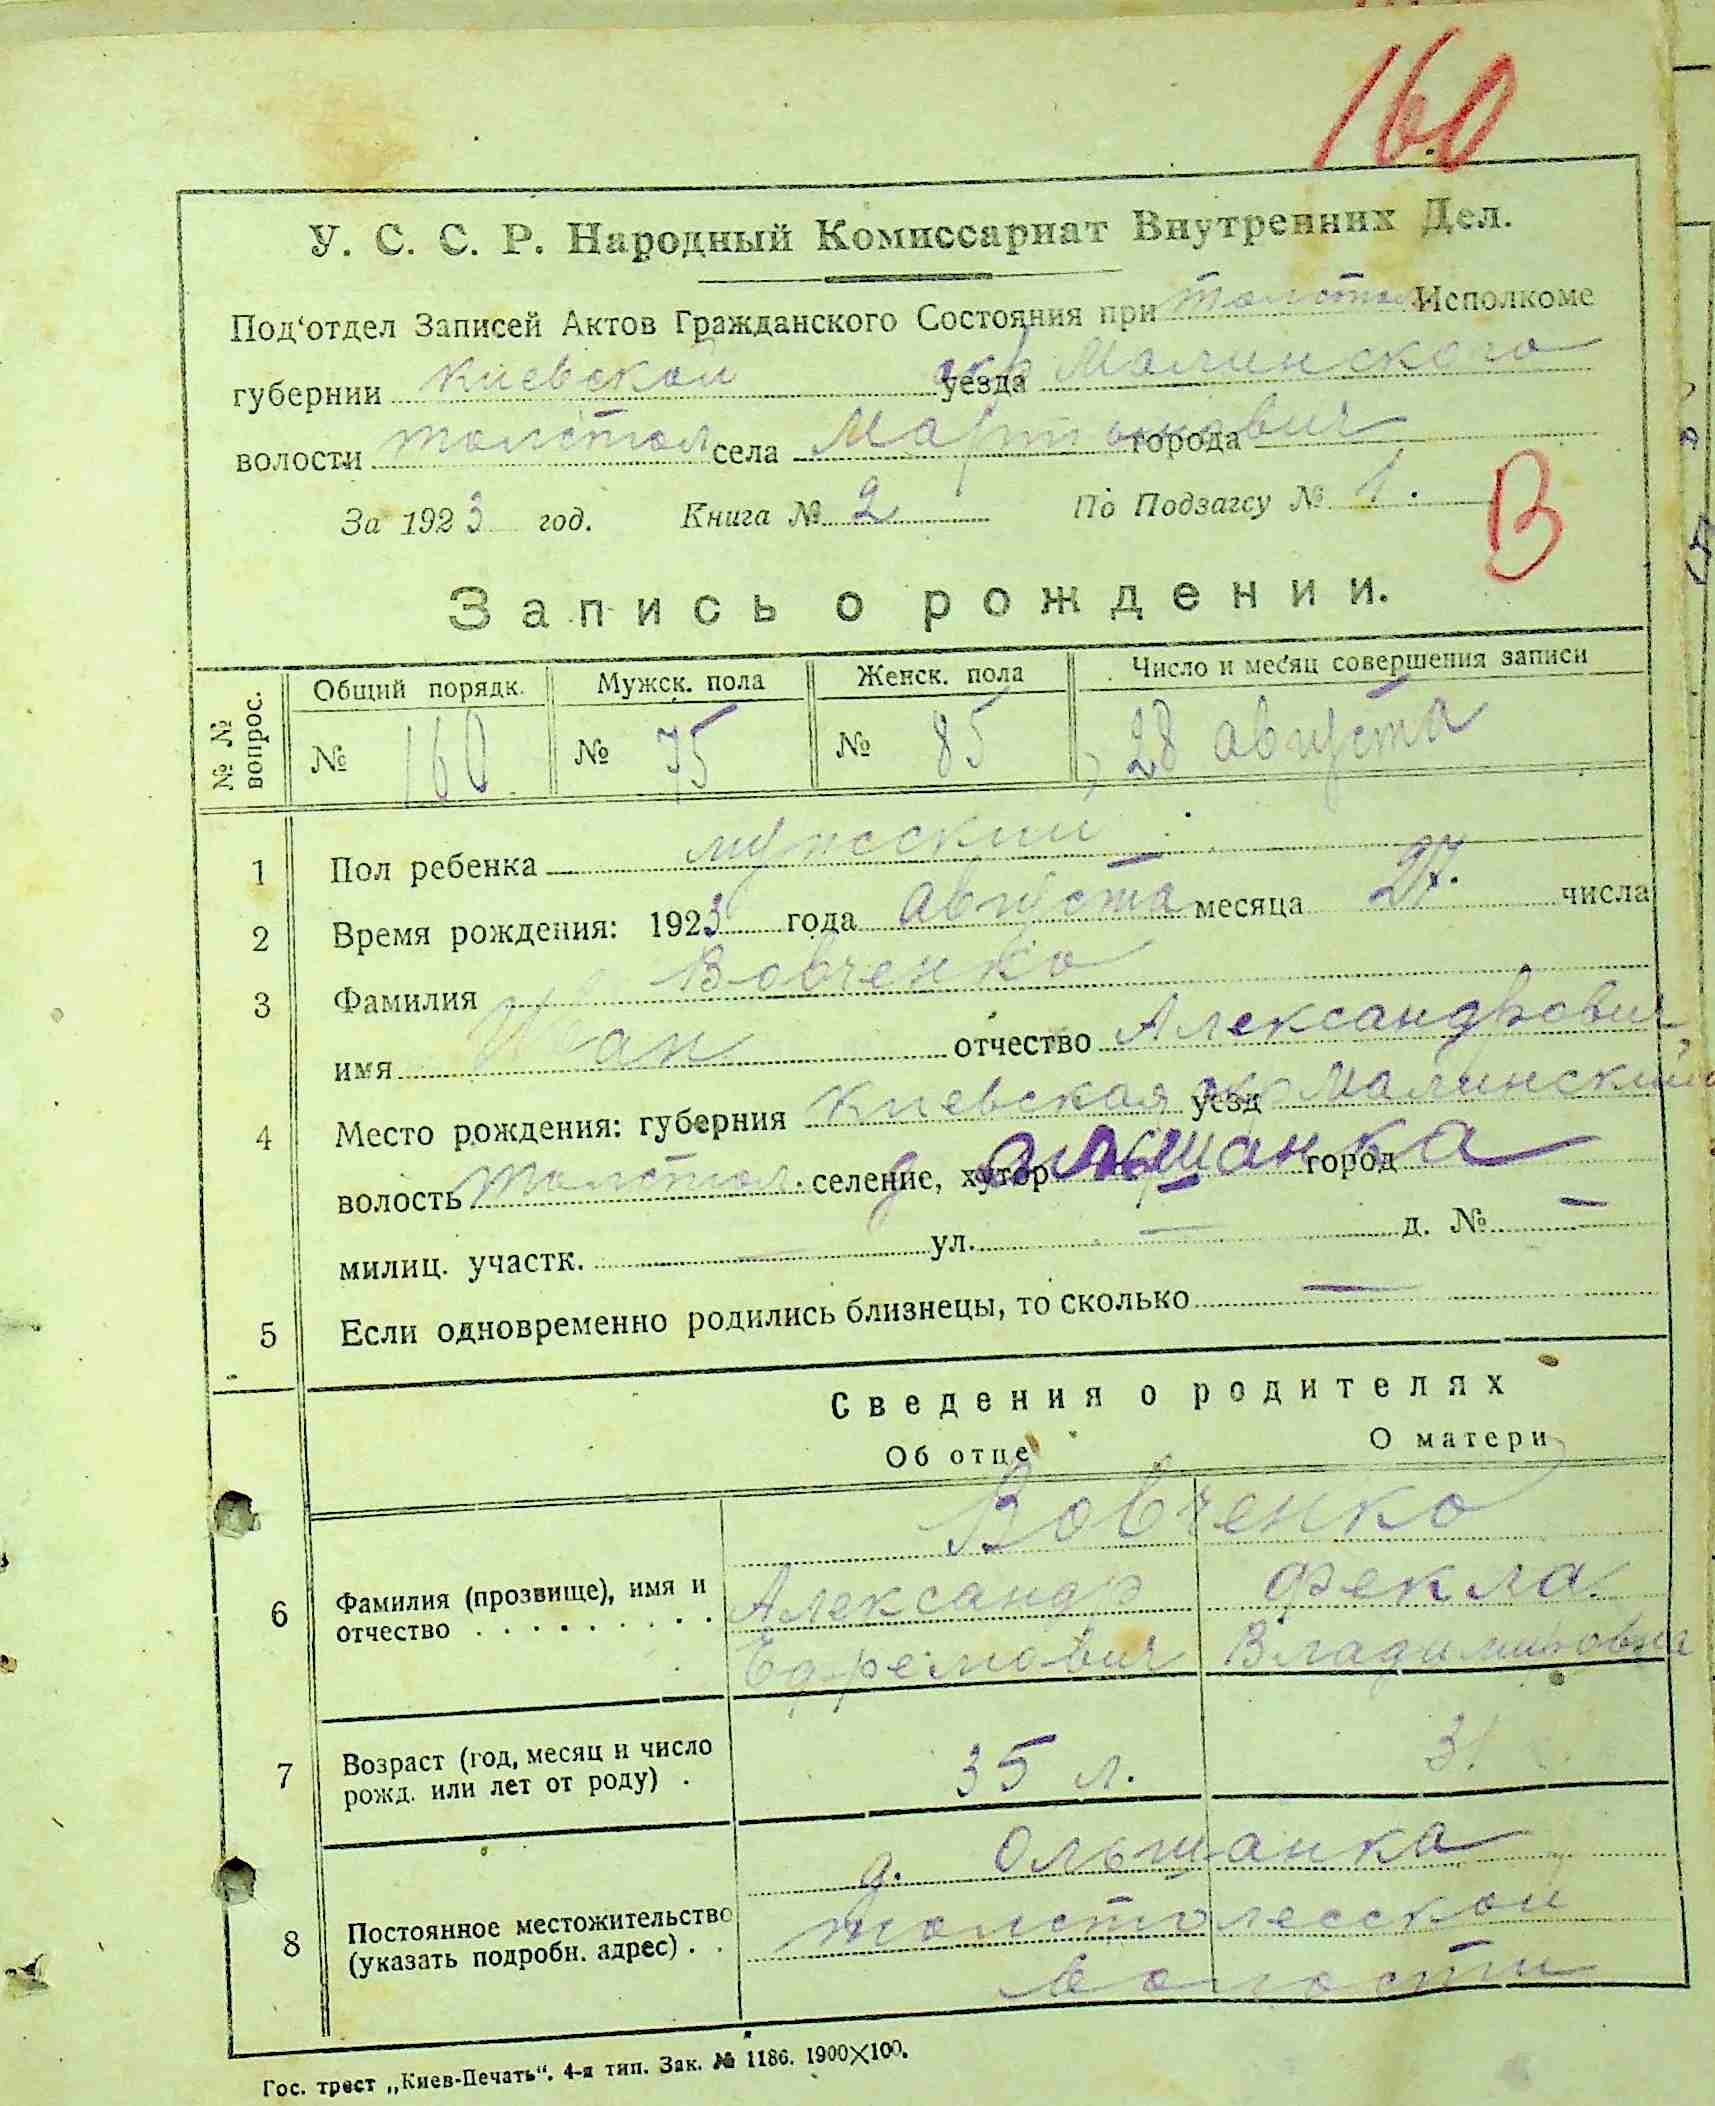 160
У. С. С. Р. Народный Комиссариат Внутренних Дел.
Под‘отдел Записей Актов Гражданского Состояния при Толстол Исполкоме
губернии Киевской окр уезда Малинского
волости Толстол села Мартынович города
За 1923 год. Книга № 2 По Подзагсу № 1.
В
Запись о рождении.
№ № вопрос.
Общий порядк. Мужск. пола Женск. пола Число и месяц совершения записи
№ 160 № 75 № 85 28 августа
1 Пол ребенка мужский
2 Время рождения: 1923 года августа месяца 27. числа
3 Фамилия Вовченко
имя Иван отчество Александрович
4 Место рождения: губерния Киевская окр уезд Малинский
волость Толстол. селение, хутор д Ольшанка город
милиц. участк. — ул. — д. № —
5 Если одновременно родились близнецы, то сколько —
Сведения о родителях
Об отце О матери
Вовченко
6 Фамилия (прозвище), имя и Александр Фекла
отчество . . . . . . . . . Ефремович Владимировна
7 Возраст (год, месяц и число
рожд. или лет от роду) . 35 л. 31
д. Ольшанка
8 Постоянное местожительство Толстолесской
(указать подробн. адрес) . . волости
Гос. трест „Киев-Печать“. 4-я тип. Зак. № 1186. 1900×100.